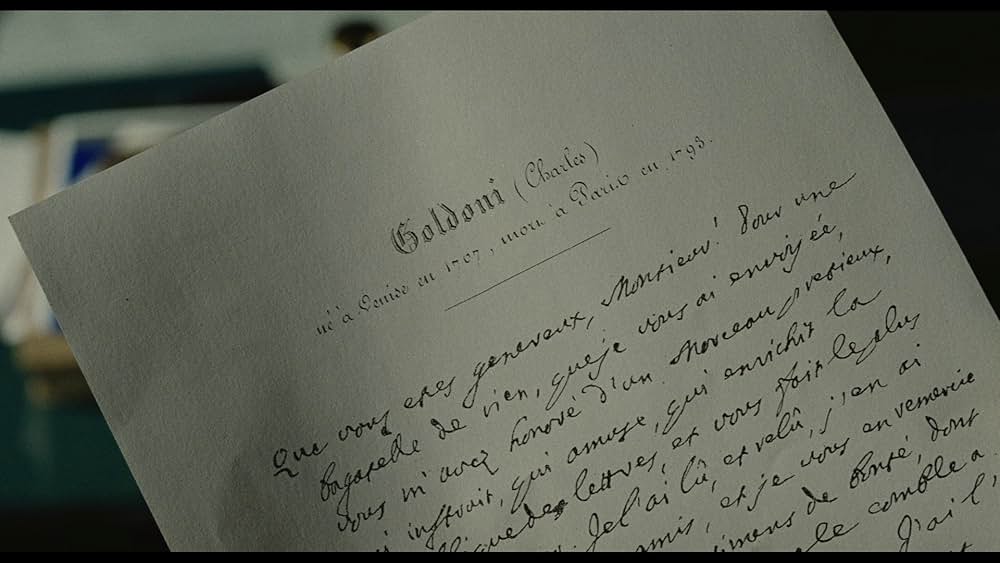 Goldoni (Charles)
né à Venise en 1707, mort à Paris en 1793.
Que vous etes genereux, Monsieur! Pour une
bagatelle de rien, que je vous ai envoyée,
vous m'avez honoré d'un Morceau pretieux,
instruit, qui amuse, qui enrichit la
des lettres, et vous fait le plus
Je l'ai lû, et relû, j'en ai
et je vous en remercie
de bonté, dont
le comble a
J'ai l'